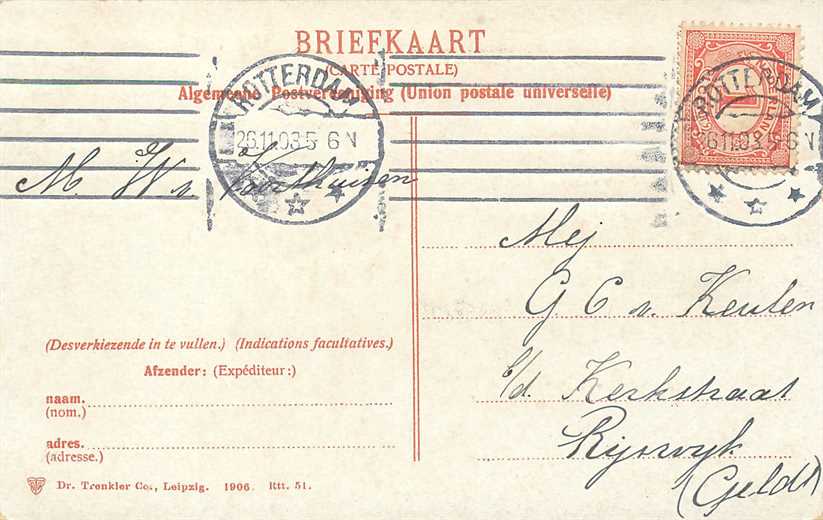 BRIEFKAART
(CARTE POSTALE)
Algemeene Postvereeniging (Union postale universelle)
ROTTERDAM
26.11.03.5 6 N
ROTTERDAM
6.11.03.5 6 N
M. W v Voorthuisen
Mej
G C v. Keulen
b/d. Kerkstraat
Rijswyk
(Geldl)
(Desverkiezende in te vullen.) (Indications facultatives.)
Afzender: (Expéditeur:)
naam.
(nom.)
adres.
(adresse.)
Dr. Trenkler Co., Leipzig. 1906. Rtt. 51.